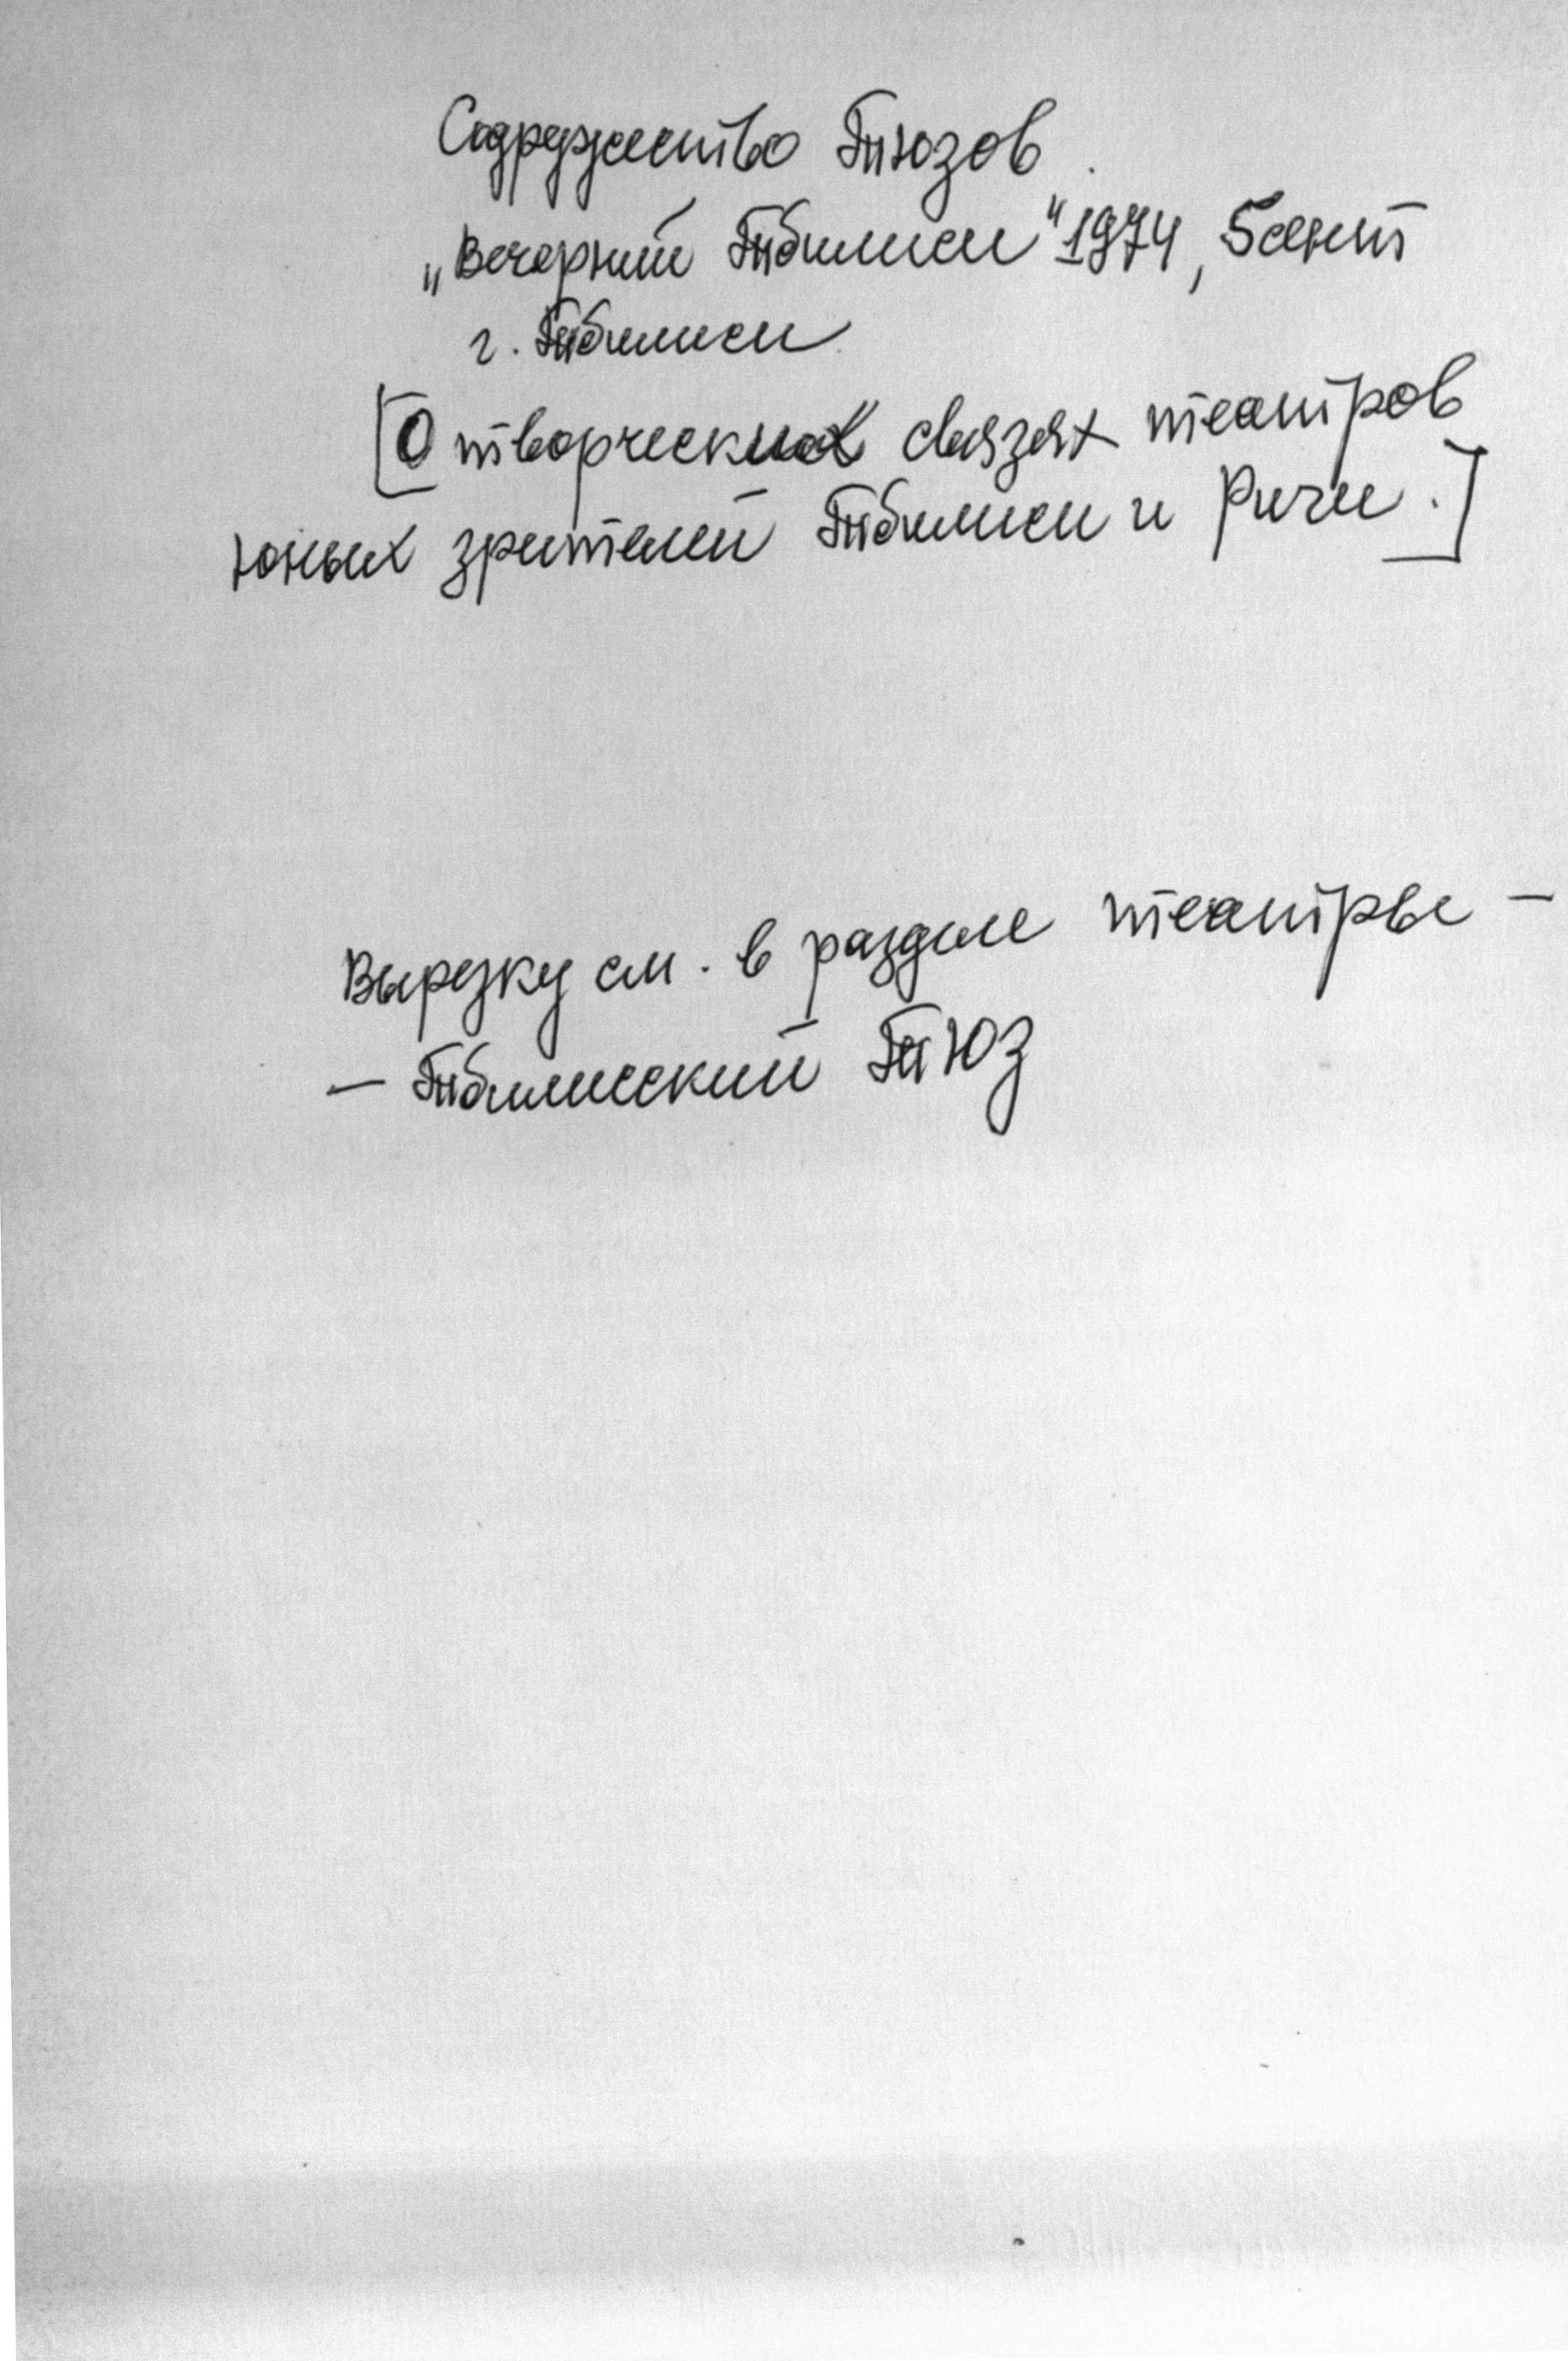 Содружество Тюзов
„Вечерний Тбилиси" 1974, 5 сент
г. Тбилиси
[О творческих связях театров
юных зрителей Тбилиси и Риги.]
Вырезку см. в разделе театры –
– Тбилисский ТЮЗ